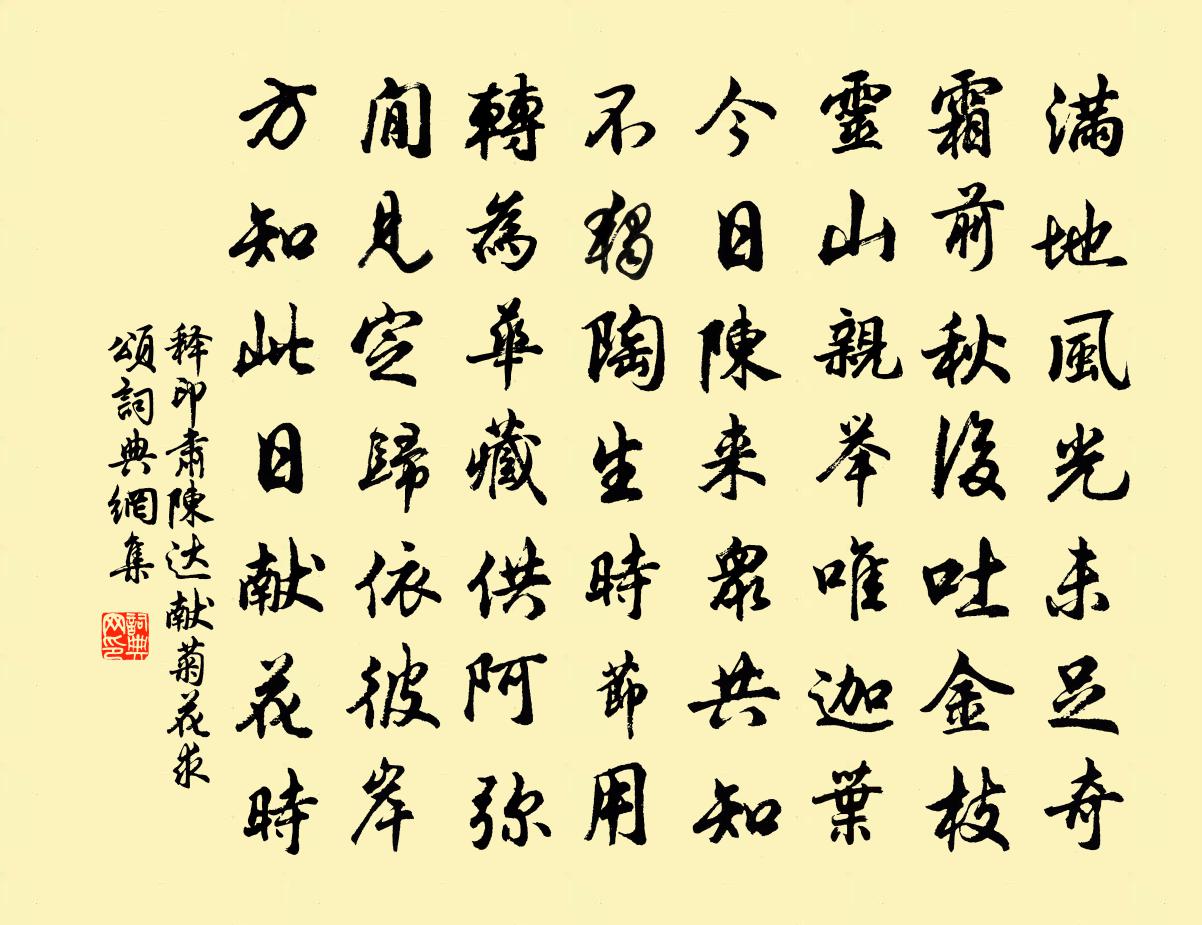 滿地風光未足奇
霜前秋後吐金枝
靈山親举唯迦葉
今日陳来眾共知
不獨陶生時節用
轉為華藏供阿弥
閒見定歸依彼岸
方知此日献花時
释印肃陳达献菊花求
頌詞典網集
詞典
网印